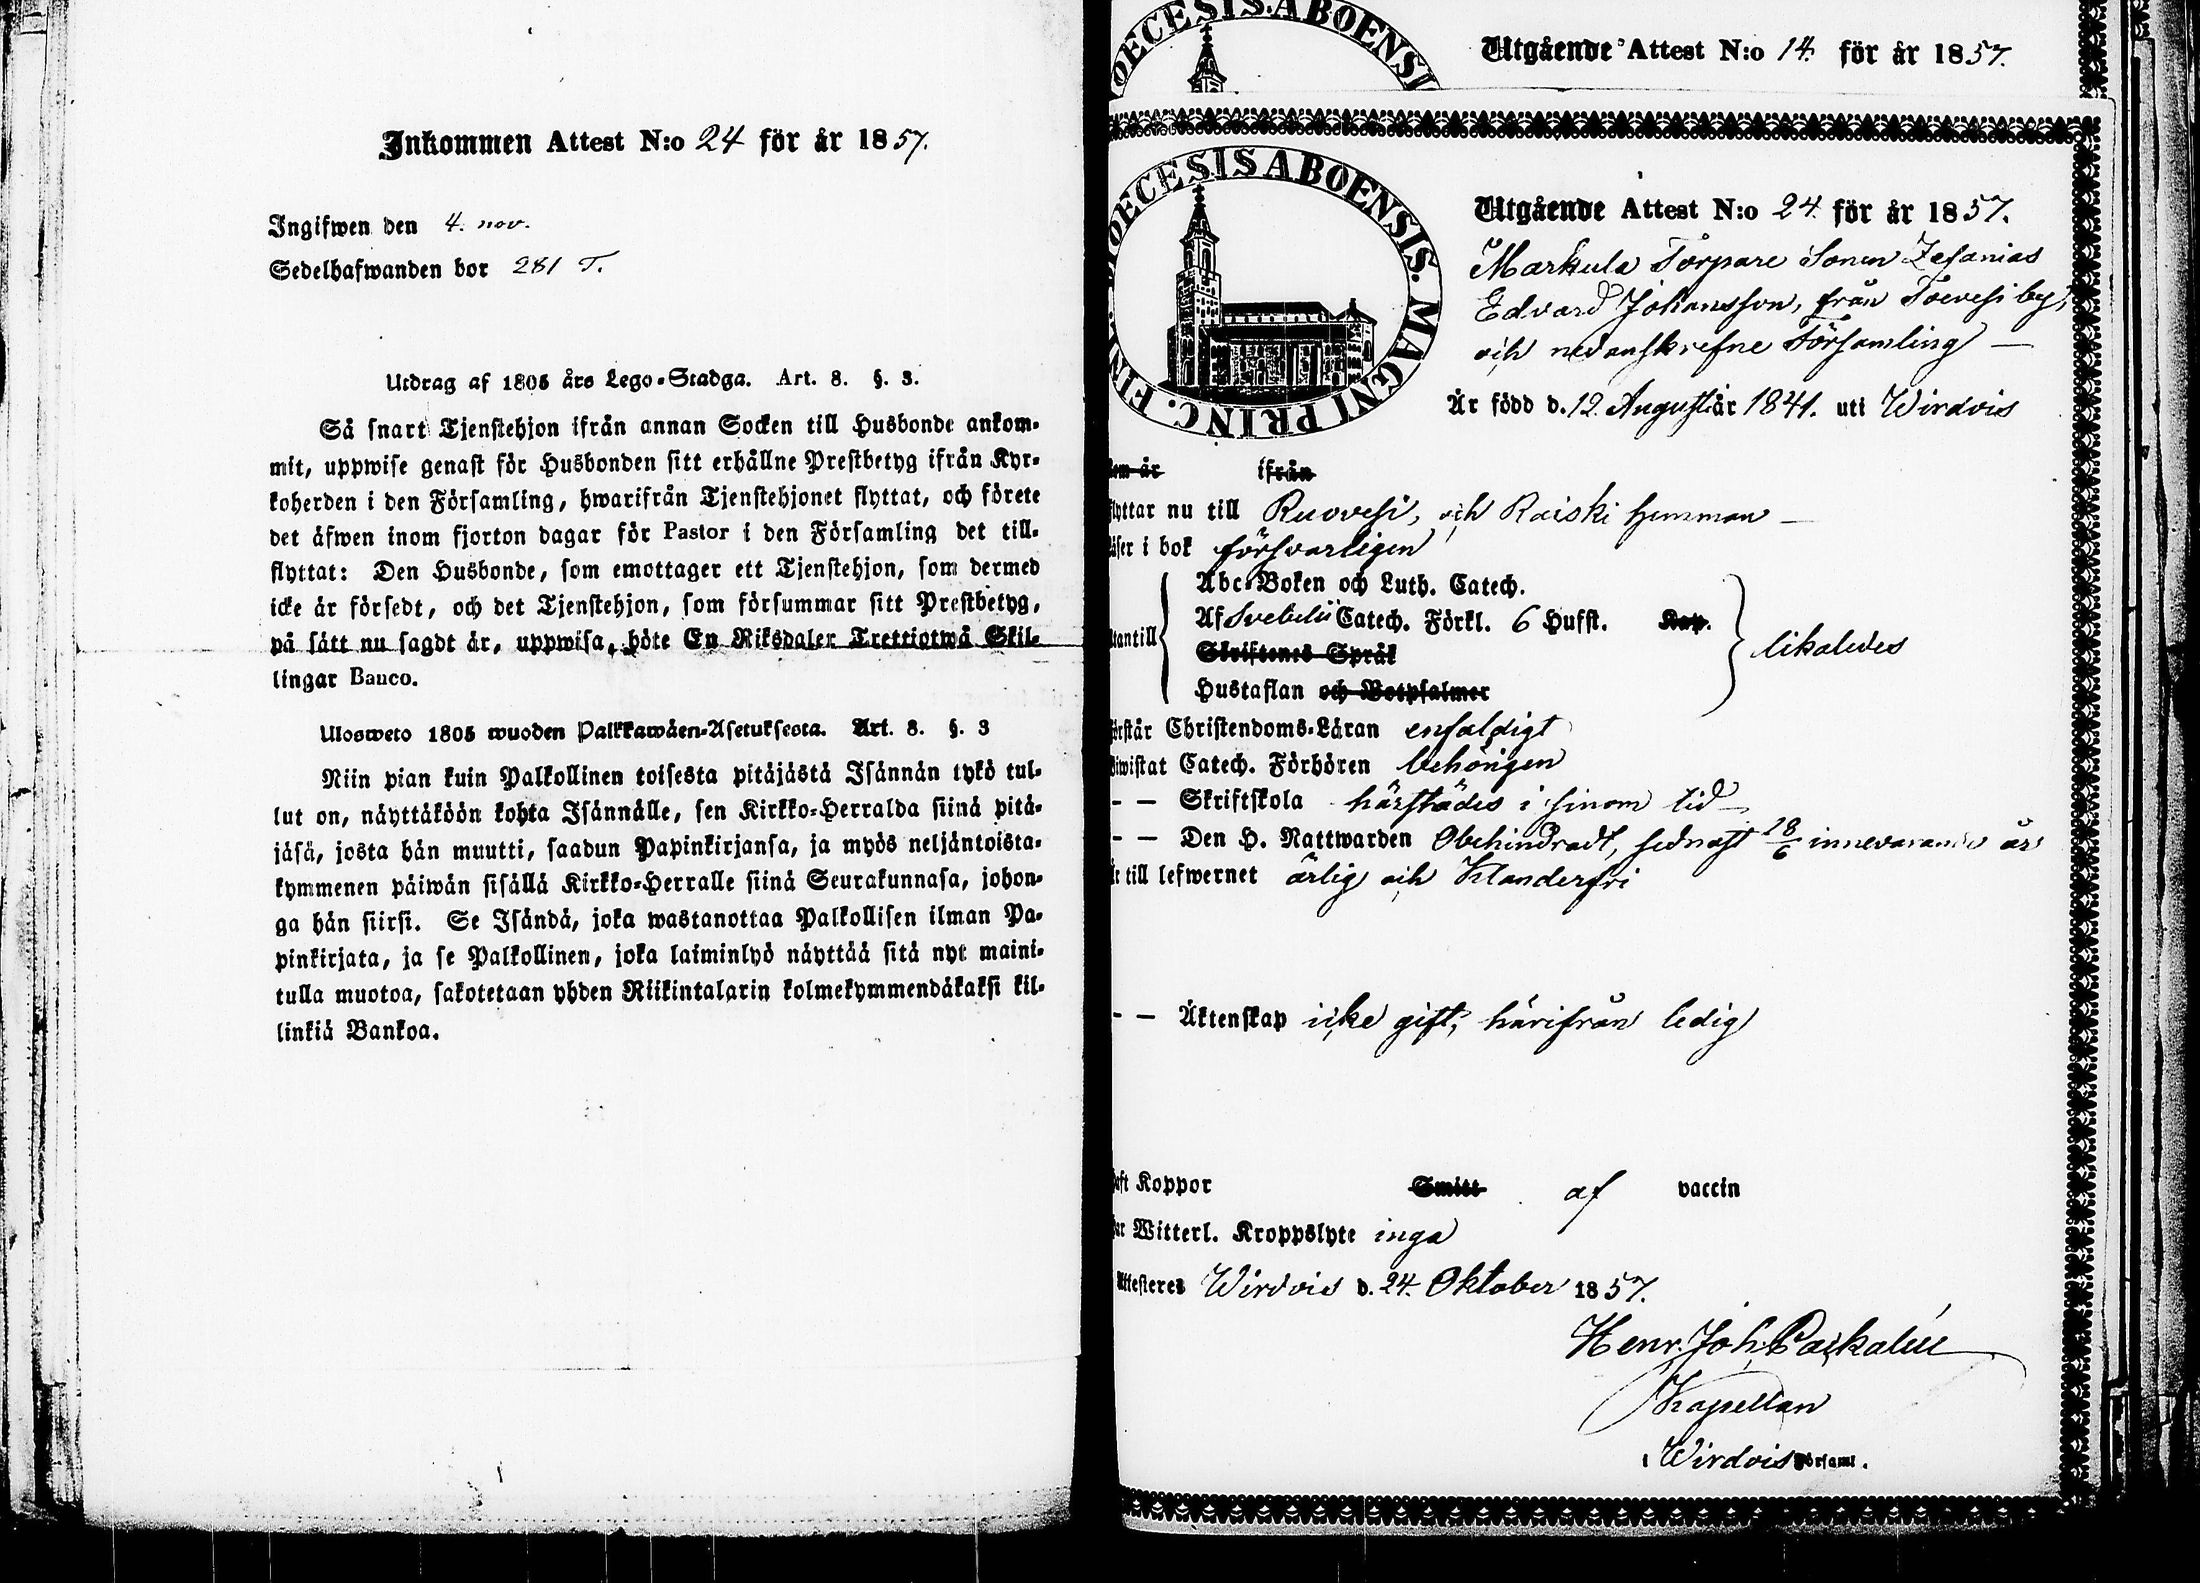 Inkommen Attest N:o 24 för år 1857.
Ingifwen den 4. nov.
Sedelhafwanden bor 281 T.
Utdrag af 1805 års Lego-Stadga. Art. 8. §. 3.
Så snart Tjenstehjon ifrån annan Socken till Husbonde ankom-
mit, uppwise genast för Husbonden sitt erhållne Prestbetyg ifrån Kyr-
koherden i den Församling, hwarifrån Tjenstehjonet flyttat, och förete
det äfwen inom fjorton dagar för Pastor i den Församling det till-
flyttat: Den Husbonde, som emottager ett Tjenstehjon, som dermed
icke är försedt, och det Tjenstehjon, som försummar sitt Prestbetyg,
på sätt nu sagdt är, uppwisa, böte En Riksdaler Trettiotwå Skil-
lingar Banco.
Ulosweto 1805 wuoden Palkkawäen-Asetuksesta. Art. 8. §. 3
Niin pian kuin Palkollinen toisesta pitäjästä Isännän tykö tul-
lut on, näyttäköön kohta Isännälle, sen Kirkko-Herralda siinä pitä-
jäsä, josta hän muutti, saadun Papinkirjansa, ja myös neljäntoista-
kymmenen päiwän sisällä Kirkko-Herralle siinä Seurakunnasa, johon-
ga hän siirsi. Se Isändä, joka wastanottaa Palkollisen ilman Pa-
pinkirjata, ja se Palkollinen, joka laiminlyö näyttää sitä nyt maini-
tulla muotoa, sakotetaan yhden Riikintalarin kolmekymmendäkaksi kil-
linkiä Bankoa.
DIOECESIS ABOENSI
Utgående Attest N:o 14. för år 1857.
DIOECESIS ABOENSIS. MAGNI PRINC. FIN
Utgående Attest N:o 24. för år 1857.
Markula Torpare Sonen Zefanias
Edvard Johansson, från Toevesi by,
och nedanskrefne Församling —
Är född d. 12. Augusti år 1841. uti Wirdois
som är ifrån
flyttar nu till Ruovesi, och Raiski hemman —
läser i bok försvarligen
Abc-Boken och Luth. Catech.
utantill Af Svebelii Catech. Förkl. 6 Hufst. Kap. likaledes
Skriftenes Språk
Hustaflan och Botpsalmer
förstår Christendoms-Läran enfaldigt
biwistat Catech. Förhören behörigen
– – Skriftskola härstädes i sinom tid
– – Den H. Nattwarden Obehindradt, sednast 28/6 innevarande år
är till lefwernet ärlig och klanderfri
– – Äktenskap icke gift, härifrån ledig
haft Koppor Smitt af vaccin
har Witterl. Kroppslyte inga
Attesteres Wirdois d. 24. Oktober 1857.
Henr. Joh.
Kapellan
i Wirdois Församl.